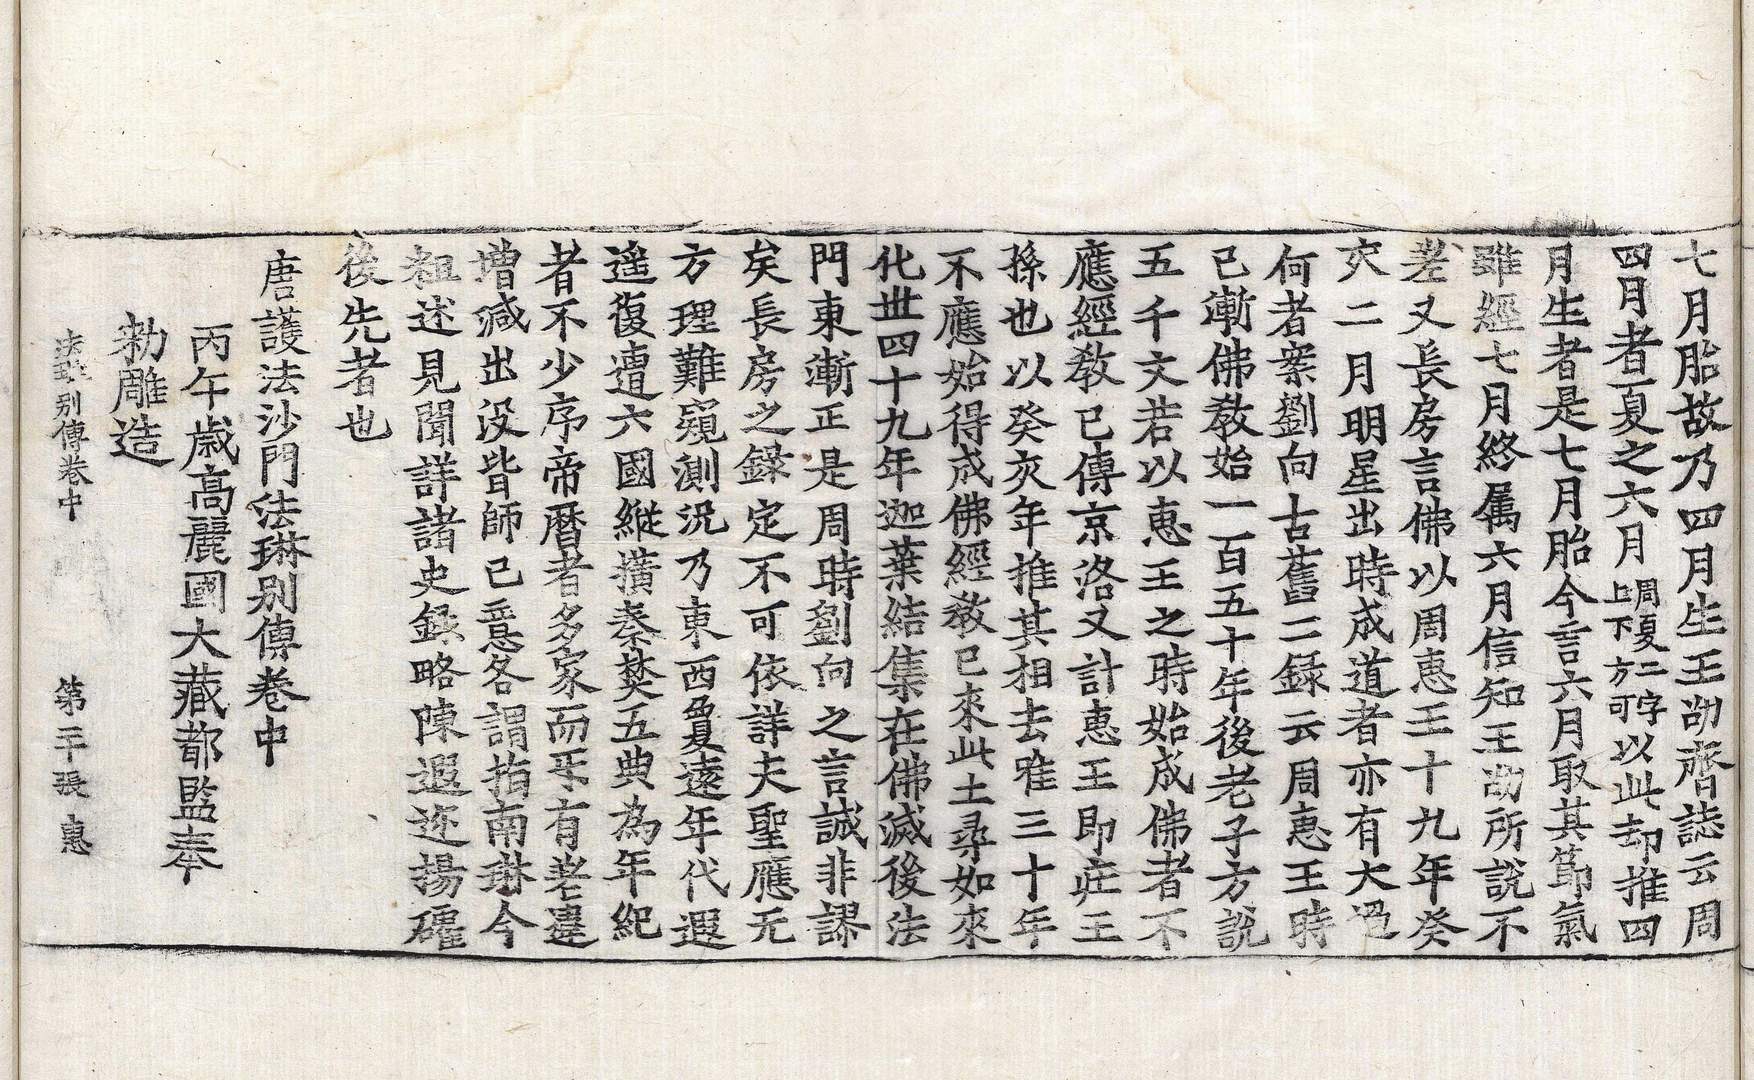 七月胎故乃四月生王劭齊誌云周
四月者夏之六月周夏二字以此却推四
上下方可
月生者是七月胎今言六月取其節氣
雖經七月終属六月信知王劭所說不
差又長房言佛以周惠王十九年癸
亥二月明星出時成道者亦有大過
何者案劉向古舊二錄云周惠王時
已漸佛教始一百五十年後老子方說
五千文若以惠王之時始成佛者不
應經教已傳京洛又計惠王即莊王
孫也以癸亥年推其相去唯三十年
不應始得成佛經教已來此土尋如來
化丗四十九年迦葉結集在佛滅後法
門東漸正是周時劉向之言誠非謬
矣長房之錄定不可依詳夫聖應无
方理難窺測況乃東西敻遠年代遐
遥復遭六國縱撗秦焚五典為年紀
者不少序帝曆者多家而乎有差違
增減出沒皆師己意各謂指南琳今
粗述見聞詳諸史録略陳遐迩揚礭
後先者也
唐護法沙門法琳別傳卷中
丙午歲高麗國大藏都監奉
勑雕造
法琳別傳卷中 第二十張 惠